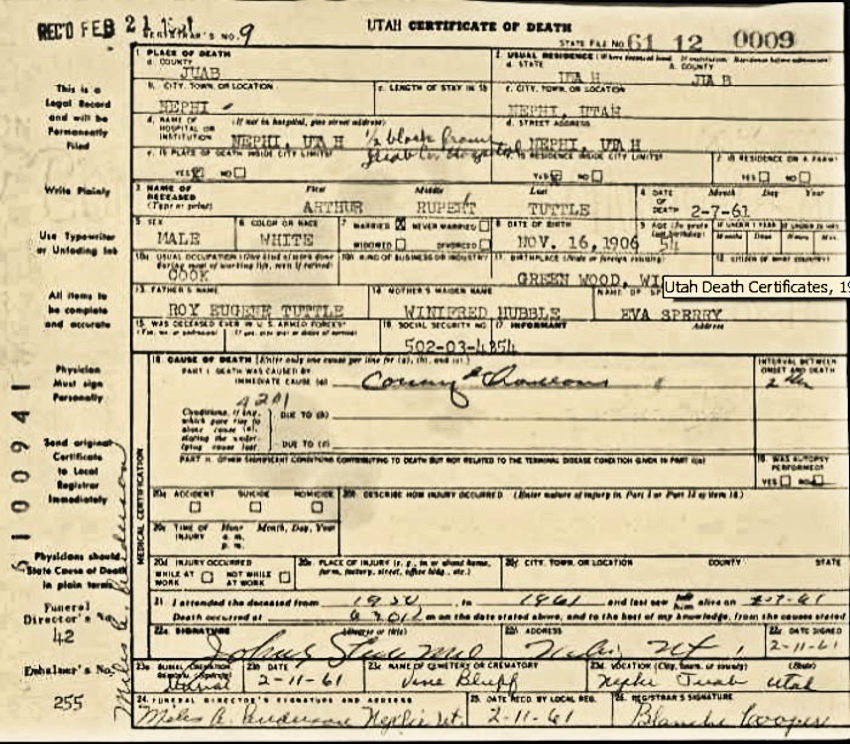 REC'D FEB 21
REGISTRAR'S NO. 9
UTAH CERTIFICATE OF DEATH
STATE FILE NO. 61 12 0009
This is a
Legal Record
and will be
Permanently
Filed
Write Plainly
Use Typewriter
or Unfading Ink
All items to
be complete
and accurate
Physician
Must sign
Personally
Send original
Certificate
to Local
Registrar
Immediately
Physicians should
State Cause of Death
in plain terms.
Funeral
Director's No.
42
Embalmer's No.
255
6100941
Miles A. Anderson
MEDICAL CERTIFICATION
1 PLACE OF DEATH
a. COUNTY
JUAB
2. USUAL RESIDENCE
a. STATE
b. COUNTY
b. CITY, TOWN, OR LOCATION
NEPHI
c. LENGTH OF STAY IN 1b
c. CITY, TOWN, OR LOCATION
NEPHI, UTAH
d. NAME OF HOSPITAL OR INSTITUTION
(If not in hospital, give street address)
NEPHI, UTAH 1/2 block from
Juab Co Hospital
d. STREET ADDRESS
NEPHI, UTAH
e. IS PLACE OF DEATH INSIDE CITY LIMITS?
YES NO
e. IS RESIDENCE INSIDE CITY LIMITS?
YES NO
f. IS RESIDENCE ON A FARM?
YES NO
3 NAME OF DECEASED (Type or print)
First Middle Last
ARTHUR RUPERT TUTTLE
4 DATE OF DEATH
Month Day Year
2-7-61
5 SEX
MALE
6 COLOR OR RACE
WHITE
7 MARRIED X NEVER MARRIED
WIDOWED DIVORCED
8 DATE OF BIRTH
NOV. 16, 1906
9 AGE
54
10a USUAL OCCUPATION
COOK
10b KIND OF BUSINESS OR INDUSTRY
11. BIRTHPLACE
GREEN WOOD,
Utah Death Certificates,
13. FATHER'S NAME
ROY EUGENE TUTTLE
14 MOTHER'S MAIDEN NAME
WINIFRED HUBBLE
EVA SPERRY
15. WAS DECEASED EVER IN U.S. ARMED FORCES?
16. SOCIAL SECURITY NO
502-03-4354
17 INFORMANT
Address
18 CAUSE OF DEATH (Enter only one cause per line for (a), (b), and (c).)
PART I. DEATH WAS CAUSED BY
IMMEDIATE CAUSE (a)
INTERVAL BETWEEN
ONSET AND DEATH
4201
Conditions, if any,
which gave rise to
above cause (a),
stating the under-
lying cause last.
DUE TO (b)
DUE TO (c)
PART II. OTHER SIGNIFICANT CONDITIONS CONTRIBUTING TO DEATH BUT NOT RELATED TO THE TERMINAL DISEASE CONDITION GIVEN IN PART I(a)
19 WAS AUTOPSY
PERFORMED?
YES NO
20a ACCIDENT SUICIDE HOMICIDE
20b DESCRIBE HOW INJURY OCCURRED (Enter nature of injury in Part I or Part II of item 18.)
20c TIME OF INJURY
Hour Month, Day, Year
a. m.
p. m.
20d INJURY OCCURRED
WHILE AT WORK NOT WHILE AT WORK
20e PLACE OF INJURY (e.g., in or about home, farm, factory, street, office bldg., etc.)
20f CITY, TOWN, OR LOCATION COUNTY STATE
21 I attended the deceased from 1950 to 1961 and last saw him alive on
Death occurred at m on the date stated above, and to the best of my knowledge, from the causes stated
22a SIGNATURE (Degree or title)
22b ADDRESS
Nephi, Ut
22c DATE SIGNED
2-11-61
23a BURIAL, CREMATION
Burial
23b DATE
2-11-61
23c NAME OF CEMETERY OR CREMATORY
Vine Bluff
23d LOCATION (City, town, or county) (State)
Nephi Juab Utah
24. FUNERAL DIRECTOR'S SIGNATURE AND ADDRESS
Miles A. Anderson Nephi Ut.
25. DATE RECD. BY LOCAL REG.
2-11-61
26. REGISTRAR'S SIGNATURE
Blanche Cooper